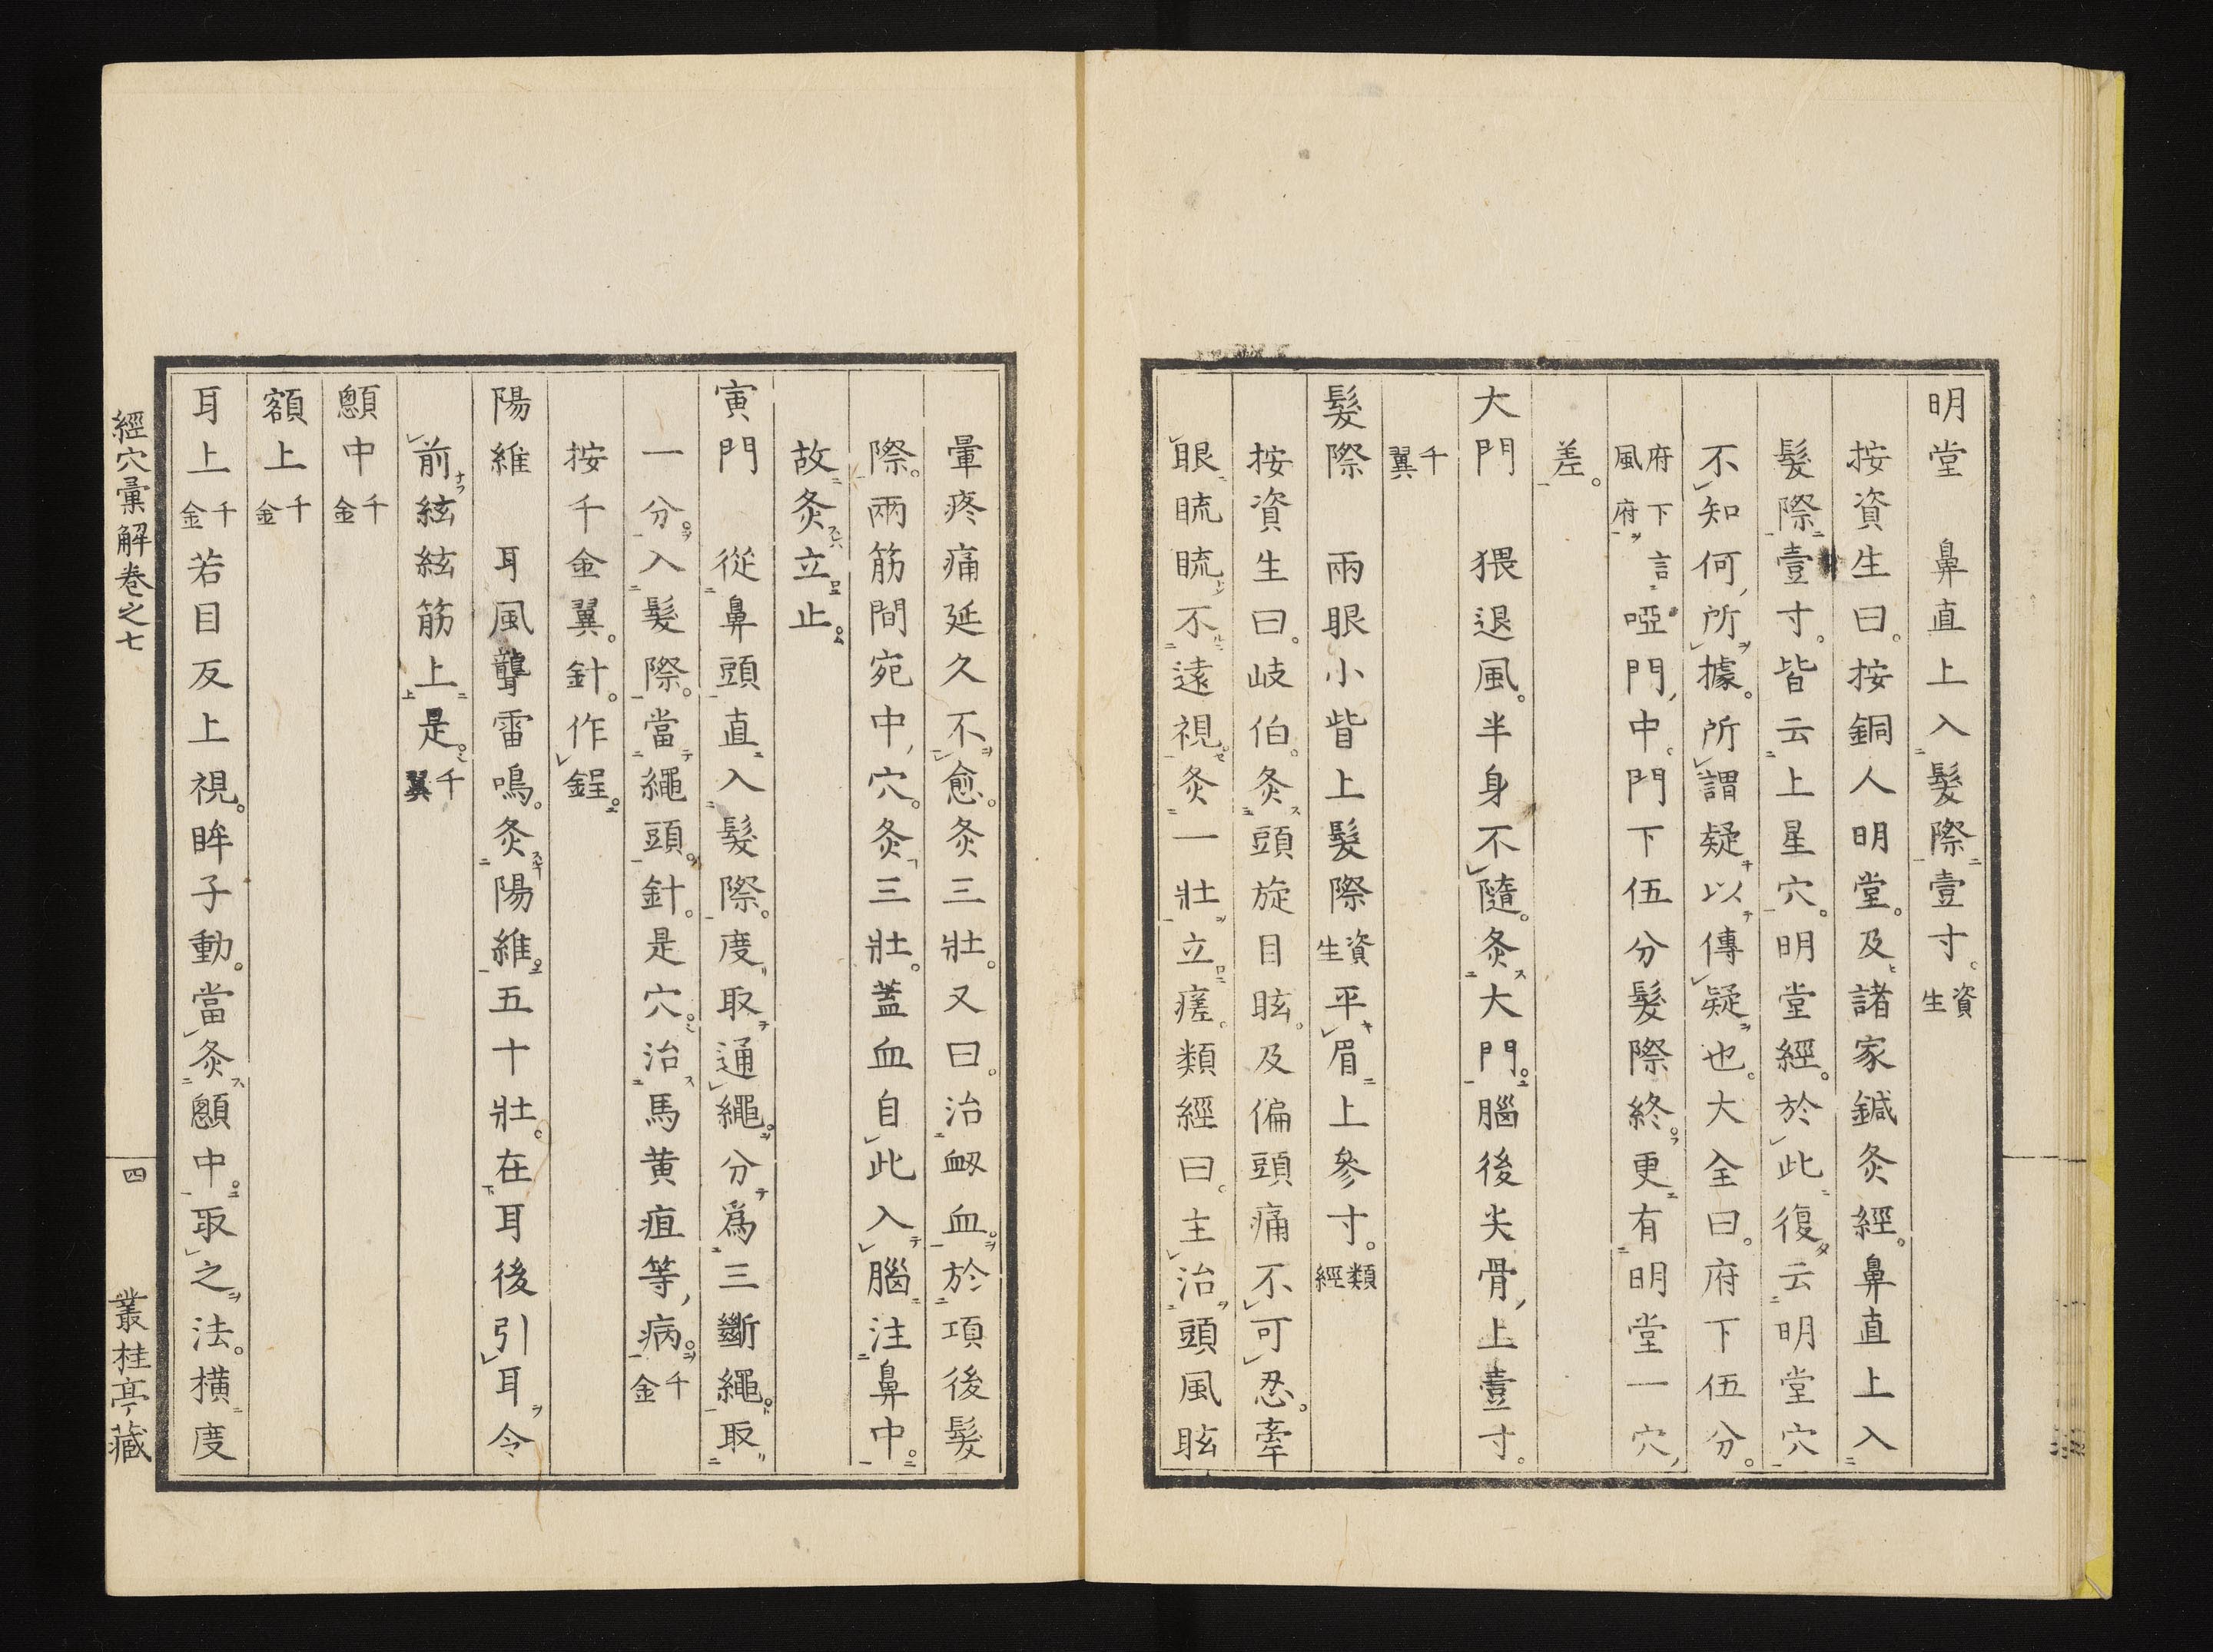 明堂　鼻直上入髮際壹寸。資生
按資生曰。按銅人明堂。及諸家鍼灸經。鼻直上入
髮際壹寸。皆云上星穴。明堂經。於此復云明堂穴
不知何所據。所謂疑以傳疑也。大全曰。府下伍分。
府下言風府瘂門中。門下伍分髮際終更有明堂一穴
差。
大門　猥退風。半身不隨。灸大門。腦後尖骨上壹寸。
千翼
髮際　兩眼小眥上髮際資生平眉上參寸。類經
按資生曰。岐伯。灸頭旋目眩。及偏頭痛不可忍。牽
眼䀮䀮不遠視。灸一壯立瘥。類經曰。主治頭風眩
暈疼痛延久不愈。灸三壯。又曰。治衂血。於項後髮
際。兩筋間宛中穴。灸三壯。蓋血自此入腦注鼻中。
故灸立止。
寅門　從鼻頭直入髮際。度取通繩。分爲三斷繩。取
一分。入髮際。當繩頭。針。是穴。治馬黄疸等病。千金
按千金翼。針。作鋥。
陽維　耳風聾雷鳴。灸陽維。五十壯。在耳後引耳令
前絃絃筋上是。千翼
顖中千金
額上千金
耳上千金若目反上視。眸子動。當灸顖中。取之法。横度
經穴彙解卷之七　四　叢桂亭藏